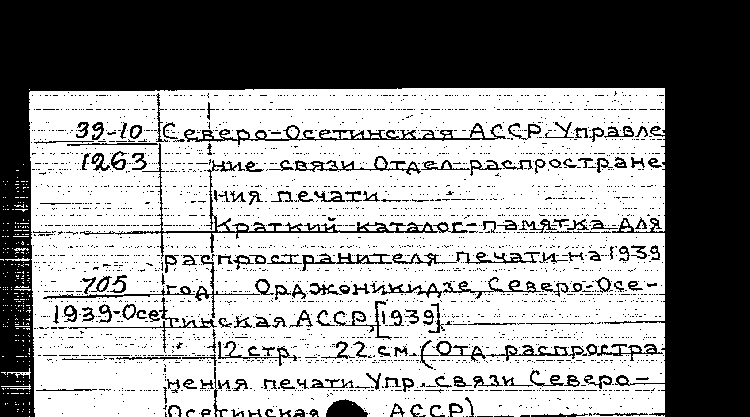 39-10 Северо-Осетинская АССР. Управле-
1263 ние связи. Отдел распростране-
ния печати.
Краткий каталог-памятка для
распространителя печати на 1939
705 год. Орджоникидзе, Северо-Осе-
1939-Осет тинская АССР, [1939].
12 стр. 22 см. (Отд. распростра-
нения печати Упр. связи Северо-
Осетинская АССР)